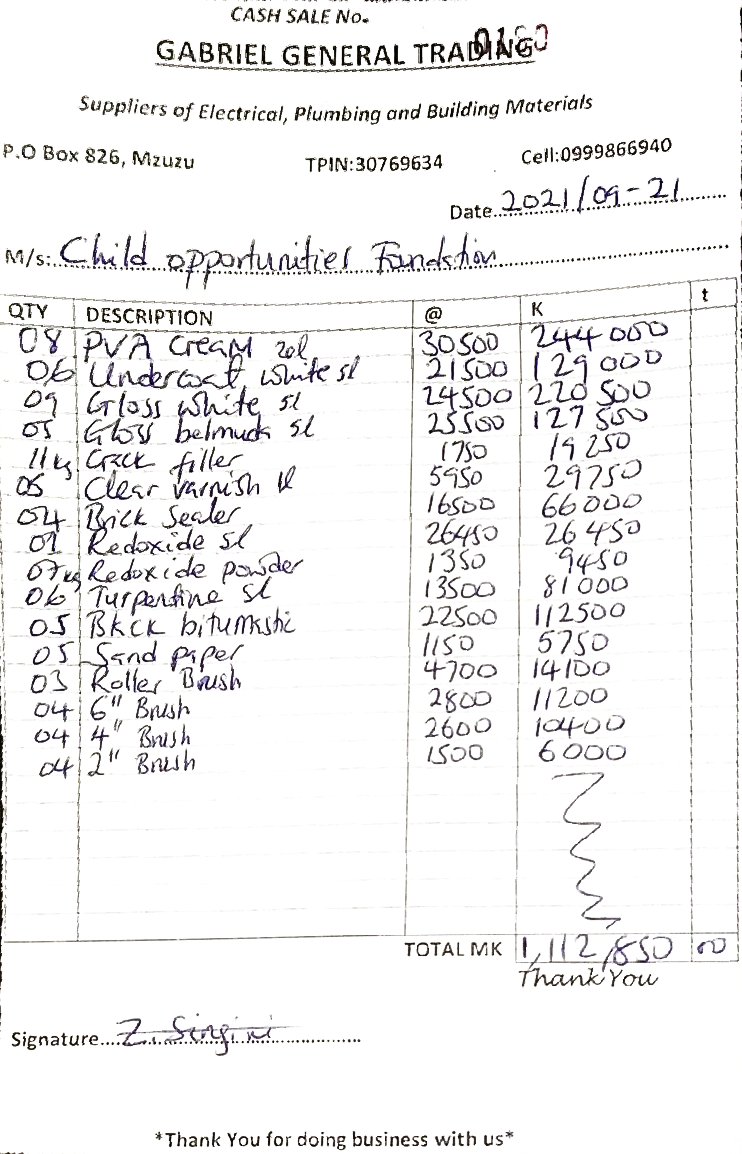 CASH SALE No.
GABRIEL GENERAL TRADING
Suppliers of Electrical, Plumbing and Building Materials
P.O Box 826, Mzuzu TPIN:30769634 Cell:0999866940
Date 2021/09-21
M/s: Child opportunities Foundation
QTY DESCRIPTION @ K t
08 PVA Cream 20l 30500 244 000
06 Undercoat white 5l 21500 129 000
09 Gloss white 5l 24500 220 500
05 Gloss belmuda 5l 25500 127 500
11kg Crack filler 1750 19 250
05 Clear varnish 1l 5950 29750
04 Brick Sealer 16500 66000
01 Redoxide 5l 26450 26 450
07kg Redoxide powder 1350 9450
06 Turpentine 5l 13500 81000
05 Black bitumastic 22500 112500
05 Sand paper 1150 5750
03 Roller Brush 4700 14100
04 6" Brush 2800 11200
04 4" Brush 2600 10400
04 2" Brush 1500 6000
TOTAL MK 1,112,850 00
Thank You
Signature Z. Singini
*Thank You for doing business with us*